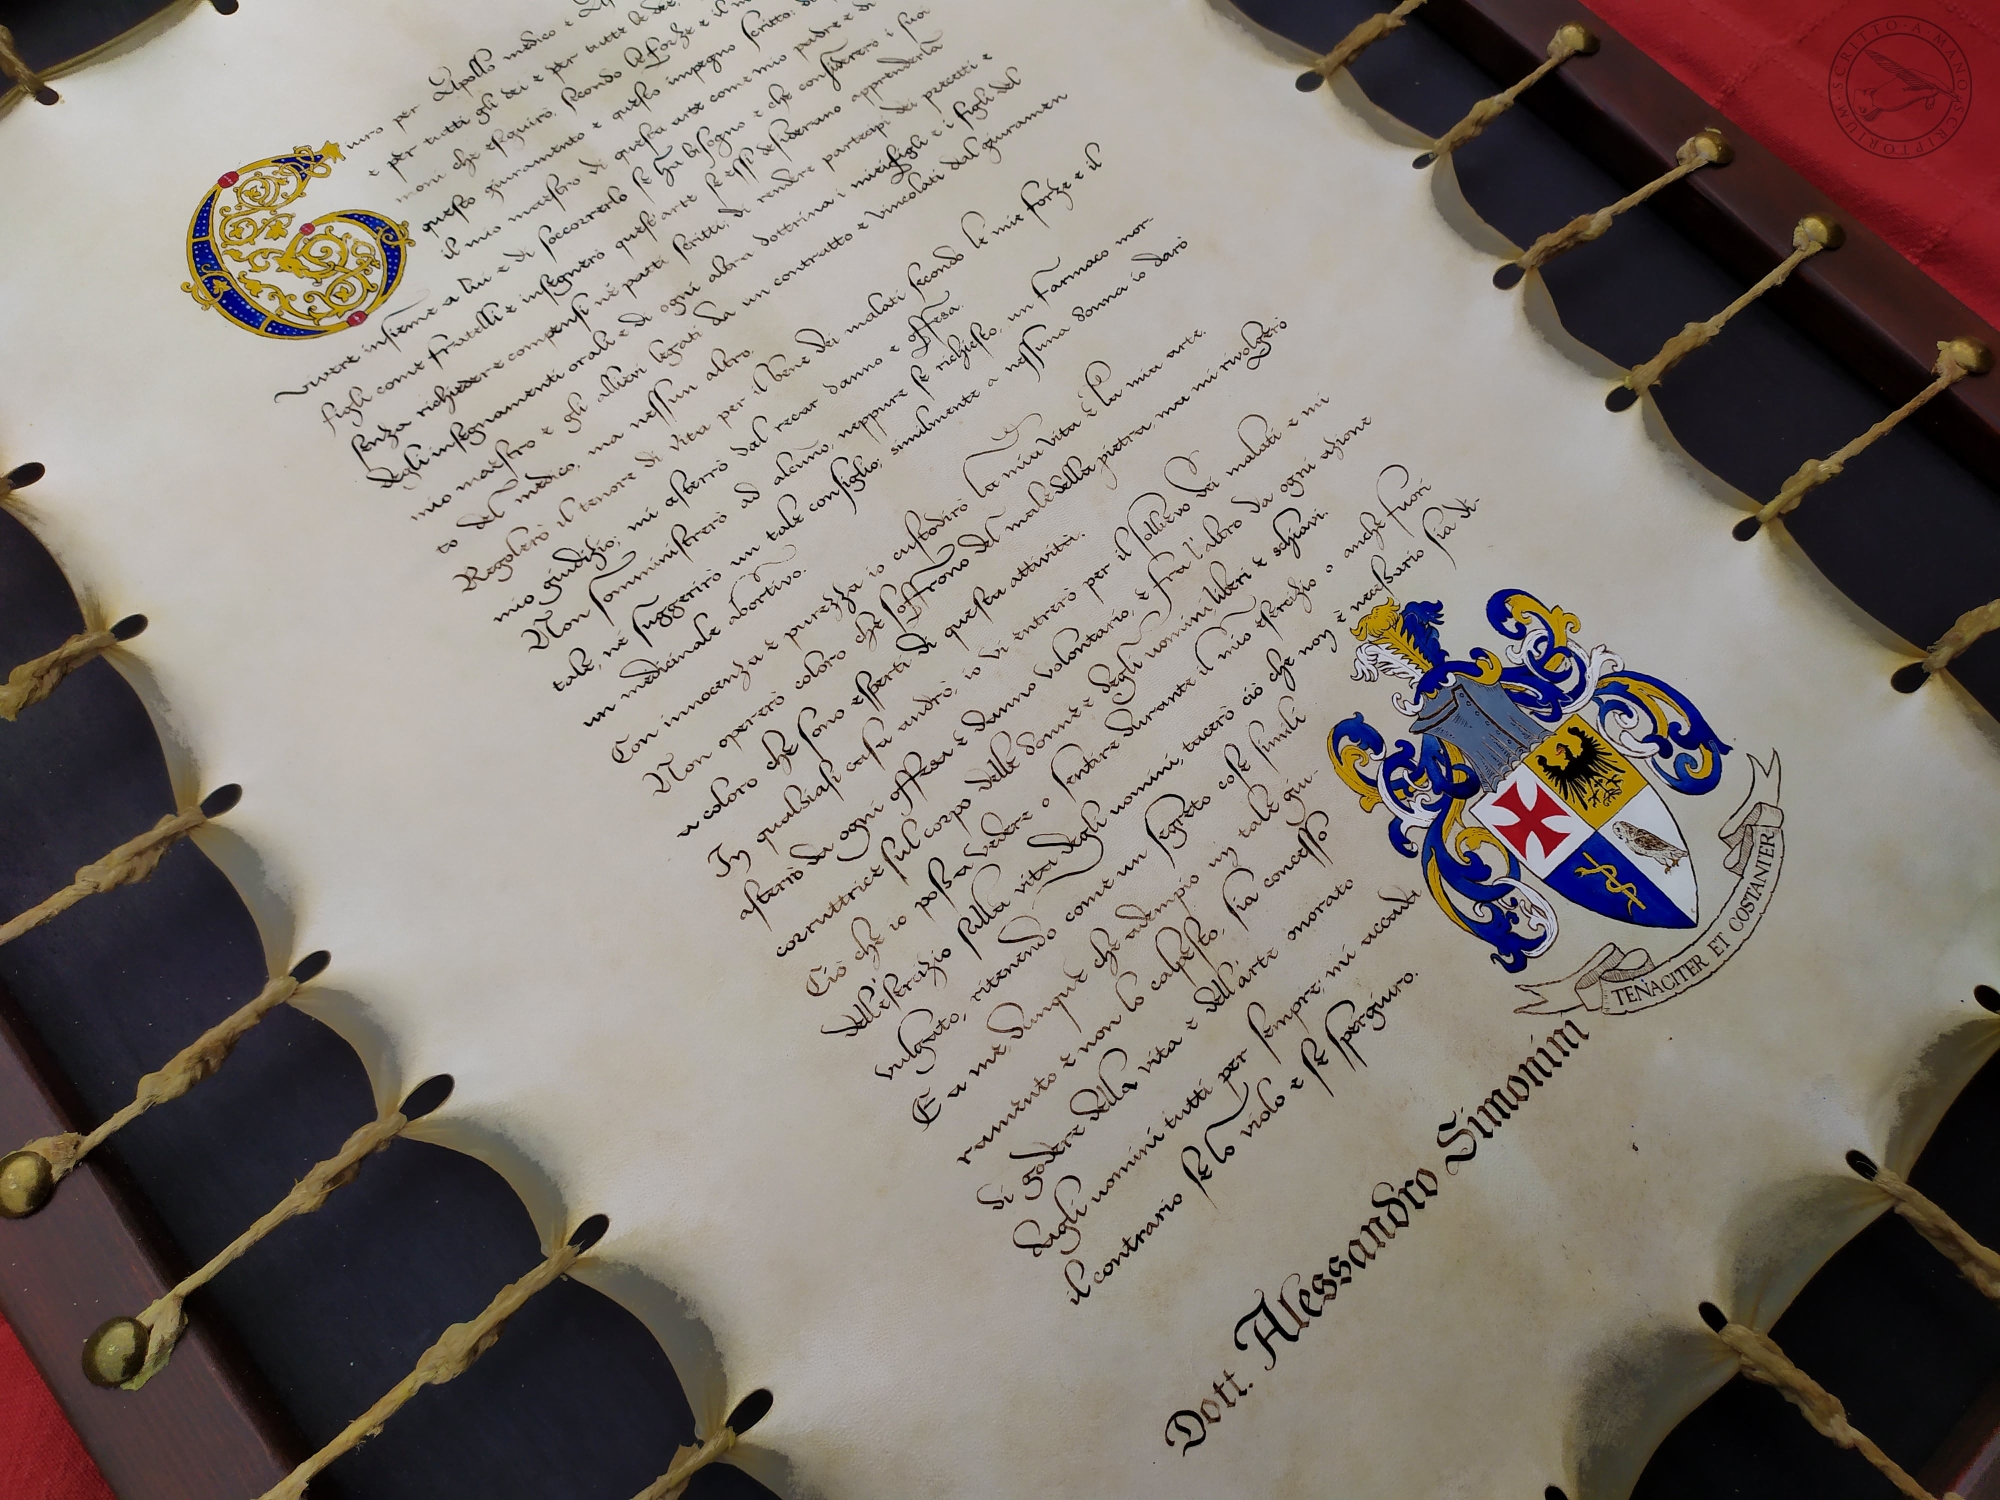 Giuro per Apollo medico e
e per tutti gli dei e per tutte le dee,
moni che eseguirò, secondo le forze e il mio
questo giuramento e questo impegno scritto: di
il mio maestro di quest'arte come mio padre e di
vivere insieme a lui e di soccorrerlo se ha bisogno e che considererò i suoi
figli come fratelli e insegnerò quest'arte se essi desiderano apprenderla
senza richiedere compensi né patti scritti; di rendere partecipi dei precetti e
degli insegnamenti orali e di ogni altra dottrina i miei figli e i figli del
mio maestro e gli allievi legati da un contratto e vincolati dal giuramen
to del medico, ma nessun altro.
Regolerò il tenore di vita per il bene dei malati secondo le mie forze e il
mio giudizio; mi asterrò dal recar danno e offesa.
Non somministrerò ad alcuno, neppure se richiesto, un farmaco mor
tale, né suggerirò un tale consiglio; similmente a nessuna donna io darò
un medicinale abortivo.
Con innocenza e purezza io custodirò la mia vita e la mia arte.
Non opererò coloro che soffrono del male della pietra, ma mi rivolgerò
a coloro che sono esperti di questa attività.
In qualsiasi casa andrò, io vi entrerò per il sollievo dei malati e mi
asterrò da ogni offesa e danno volontario, e fra l'altro da ogni azione
corruttrice sul corpo delle donne e degli uomini liberi e schiavi.
Ciò che io possa vedere o sentire durante il mio esercizio o anche fuori
dell'esercizio sulla vita degli uomini, tacerò ciò che non è necessario sia di-
vulgato, ritenendo come un segreto cose simili
E a me, dunque che adempio un tale giu-
ramento e non lo calpesto, sia concesso
di godere della vita e dell'arte onorato
dagli uomini tutti per sempre; mi accada
il contrario se lo violo e se spergiuro.
TENACITER ET COSTANTER
Dott. Alessandro Simonini
SCRITTO·A·MANO·SCRIPTORIUM